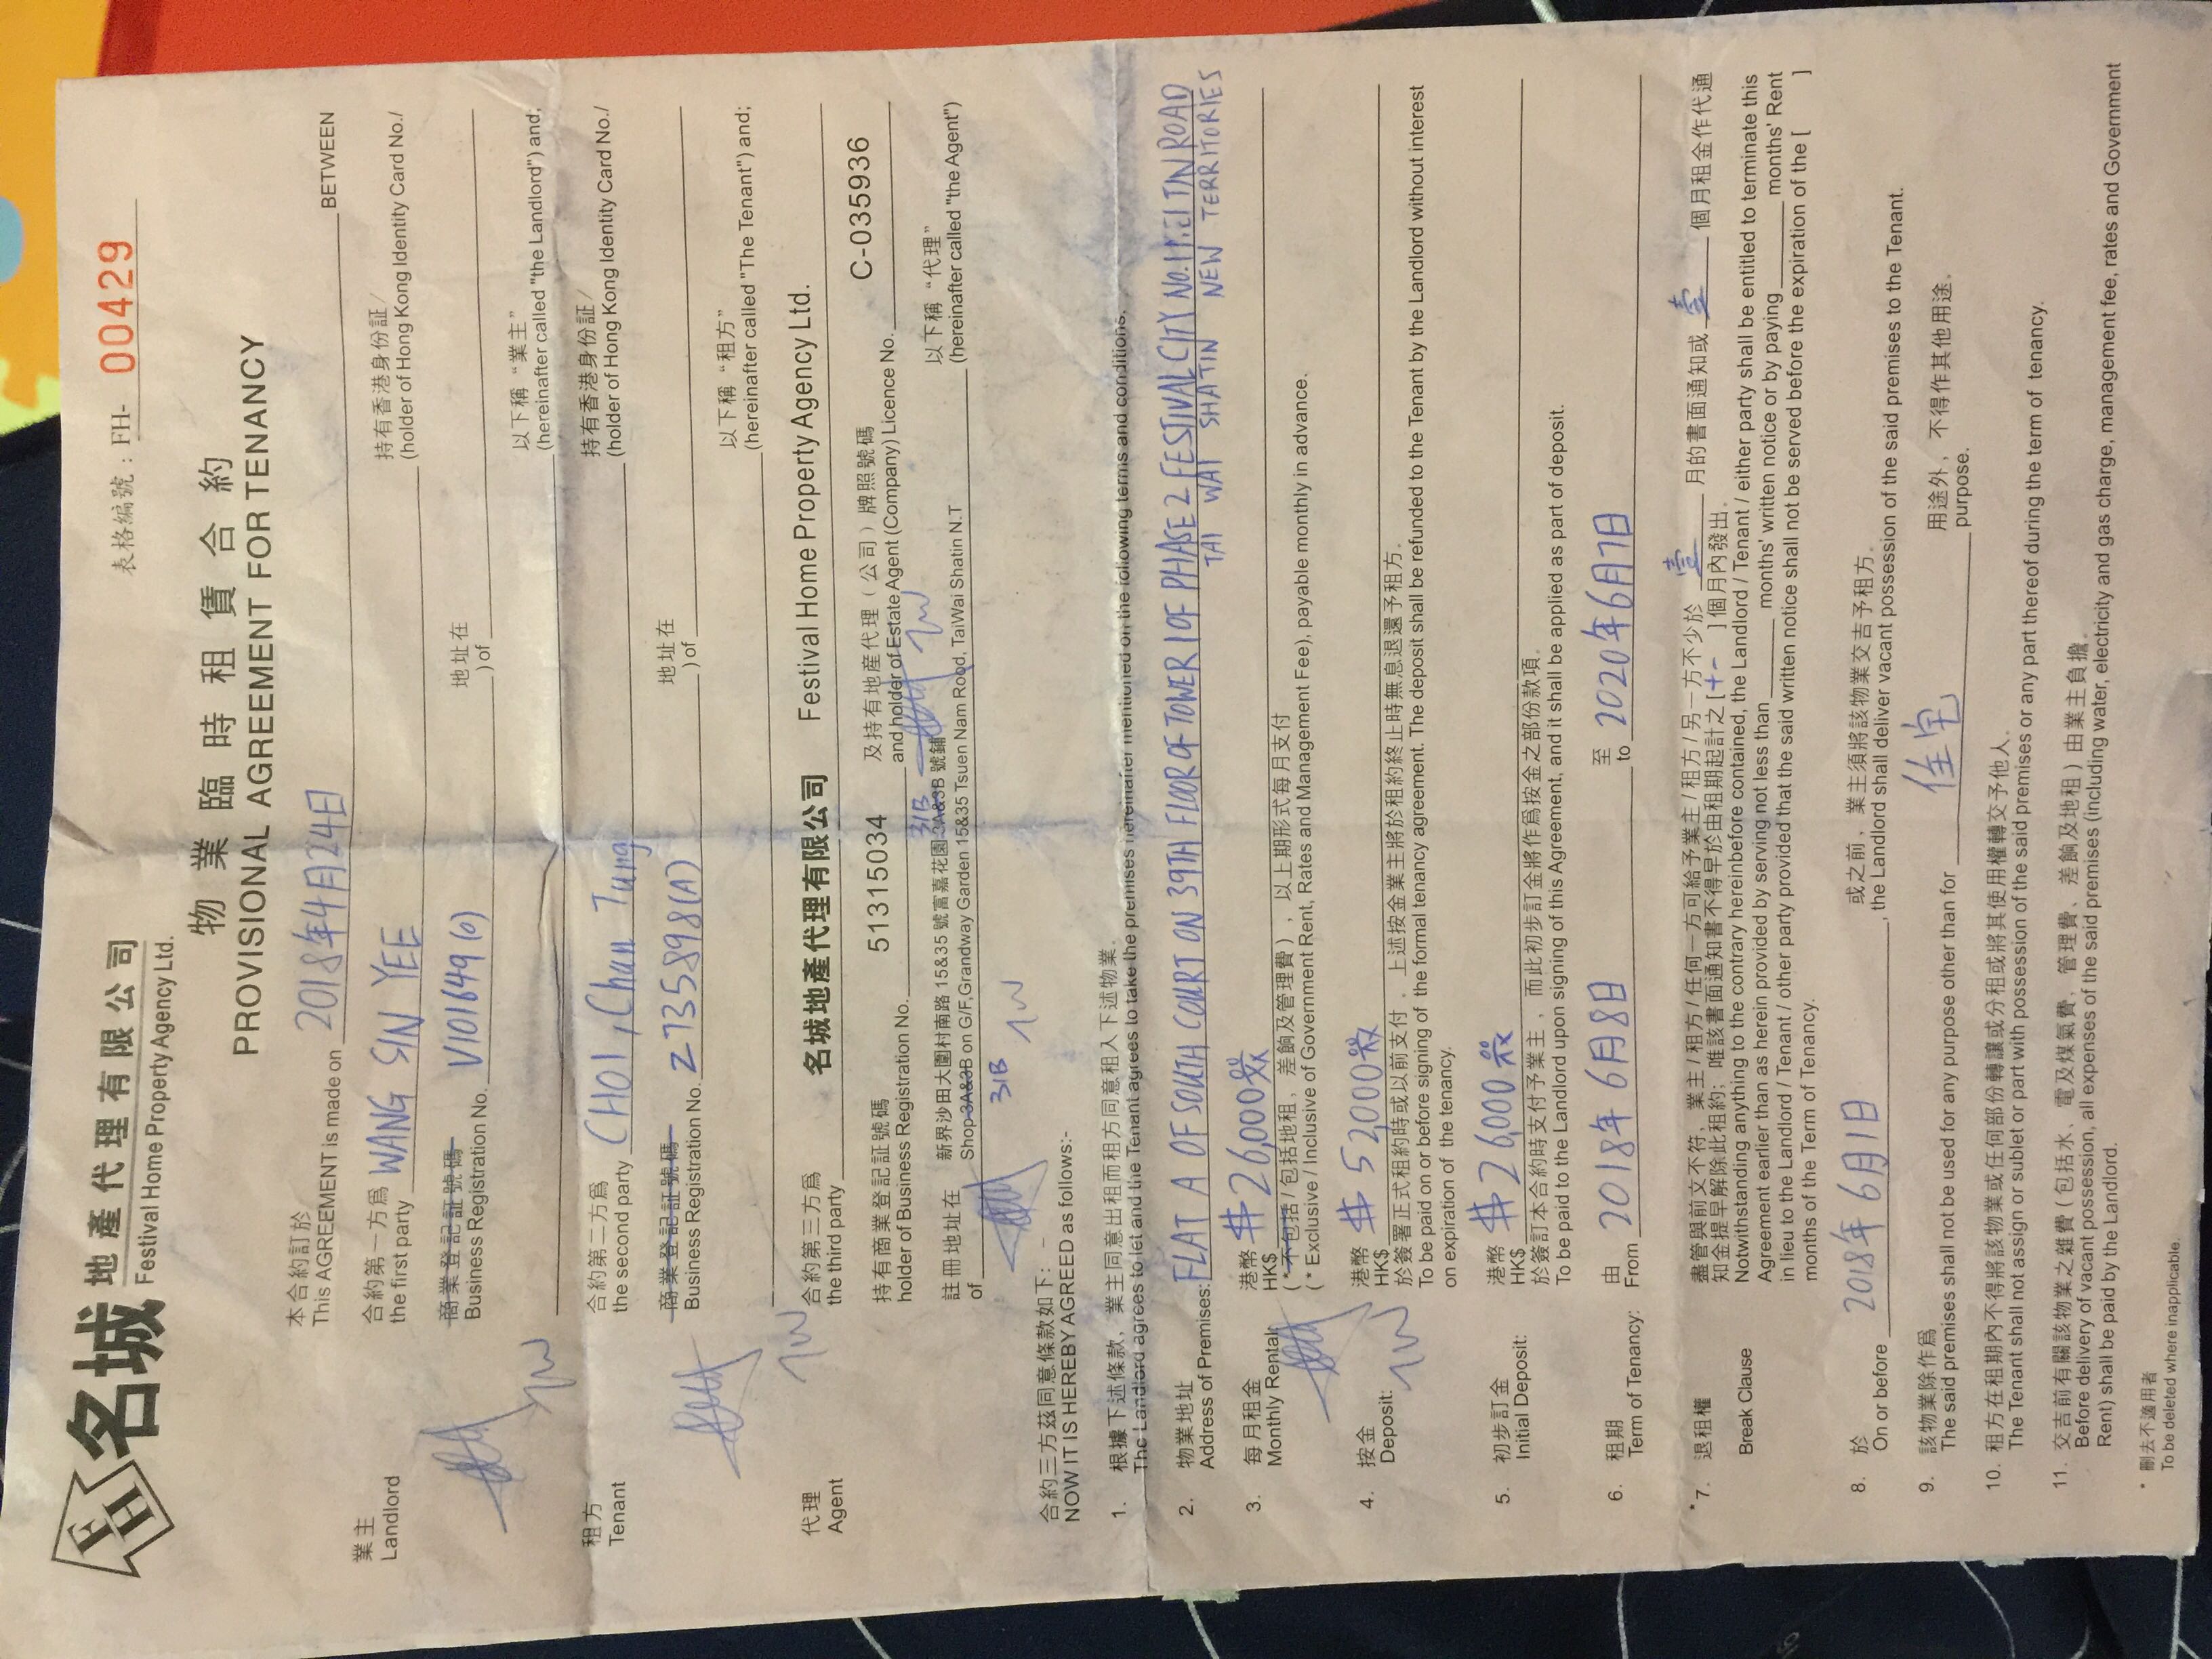 名城地產代理有限公司
Festival Home Property Agency Ltd.
表格編號：FH- 00429
物業臨時租賃合約
PROVISIONAL AGREEMENT FOR TENANCY
本合約訂於
This AGREEMENT is made on 2018年4月24日 BETWEEN
業主 合約第一方為 持有香港身份証/
Landlord the first party WANG SIN YEE (holder of Hong Kong Identity Card No./
商業登記証號碼 地址在
Business Registration No. V101649(0) ) of
以下稱 "業主"
(hereinafter called "the Landlord") and;
租方 合約第二方為 持有香港身份証/
Tenant the second party CHOI, Chan Tung (holder of Hong Kong Identity Card No./
商業登記証號碼 地址在
Business Registration No. Z735898(A) ) of
以下稱 "租方"
(hereinafter called "The Tenant") and;
代理 合約第三方為
Agent the third party 名城地產代理有限公司 Festival Home Property Agency Ltd.
持有商業登記証號碼 及持有地產代理（公司）牌照號碼
holder of Business Registration No. 51315034 and holder of Estate Agent (Company) Licence No. C-035936
31B
註冊地址在 新界沙田大圍村南路 15&35 號富嘉花園 3A&3B 號鋪 以下稱 "代理"
of Shop 3A&3B on G/F,Grandway Garden 15&35 Tsuen Nam Road, TaiWai Shatin N.T (hereinafter called "the Agent")
31B
合約三方茲同意條款如下：-
NOW IT IS HEREBY AGREED as follows:-
1. 根據下述條款，業主同意出租而租方同意租入下述物業.
The Landlord agrees to let and the Tenant agrees to take the premises hereinafter mentioned on the following terms and conditions.
2. 物業地址
Address of Premises: FLAT A OF SOUTH COURT ON 39TH FLOOR OF TOWER 1 OF PHASE 2 FESTIVAL CITY NO.1 MEI TIN ROAD
TAI WAI SHATIN NEW TERRITORIES
3. 每月租金 港幣
Monthly Rental: HK$ $26,000
(*不包括/包括地租，差餉及管理費)，以上期形式每月支付
(* Exclusive / Inclusive of Government Rent, Rates and Management Fee), payable monthly in advance.
4. 按金 港幣
Deposit: HK$ $52,000
於簽署正式租約時或以前支付．上述按金業主將於租約終止時無息退還予租方.
To be paid on or before signing of the formal tenancy agreement. The deposit shall be refunded to the Tenant by the Landlord without interest
on expiration of the tenancy.
5. 初步訂金 港幣
Initial Deposit: HK$ $26,000
於簽訂本合約時支付予業主，而此初步訂金將作為按金之部份款項.
To be paid to the Landlord upon signing of this Agreement, and it shall be applied as part of deposit.
6. 租期 由 至
Term of Tenancy: From 2018年6月8日 to 2020年6月7日
*7. 退租權 盡管與前文不符，業主/租方/任何一方可給予業主/租方/另一方不少於 壹 月的書面通知或 壹 個月租金作代通
知金提早解除此租約；唯該書面通知書不得早於由租期起計之 [十一] 個月內發出.
Break Clause Notwithstanding anything to the contrary hereinbefore contained, the Landlord / Tenant / either party shall be entitled to terminate this
Agreement earlier than as herein provided by serving not less than months' written notice or by paying months' Rent
in lieu to the Landlord / Tenant / other party provided that the said written notice shall not be served before the expiration of the [ ]
months of the Term of Tenancy.
8. 於 或之前，業主須將該物業交吉予租方.
On or before 2018年6月1日 , the Landlord shall deliver vacant possession of the said premises to the Tenant.
9. 該物業除作為 用途外，不得作其他用途.
The said premises shall not be used for any purpose other than for 住宅 purpose.
10. 租方在租期內不得將該物業或任何部份轉讓或分租或將其使用權轉交予他人.
The Tenant shall not assign or sublet or part with possession of the said premises or any part thereof during the term of tenancy.
11. 交吉前有關該物業之雜費（包括水、電及煤氣費，管理費、差餉及地租）由業主負擔.
Before delivery of vacant possession, all expenses of the said premises (including water, electricity and gas charge, management fee, rates and Government
Rent) shall be paid by the Landlord.
* 刪去不適用者
To be deleted where inapplicable.